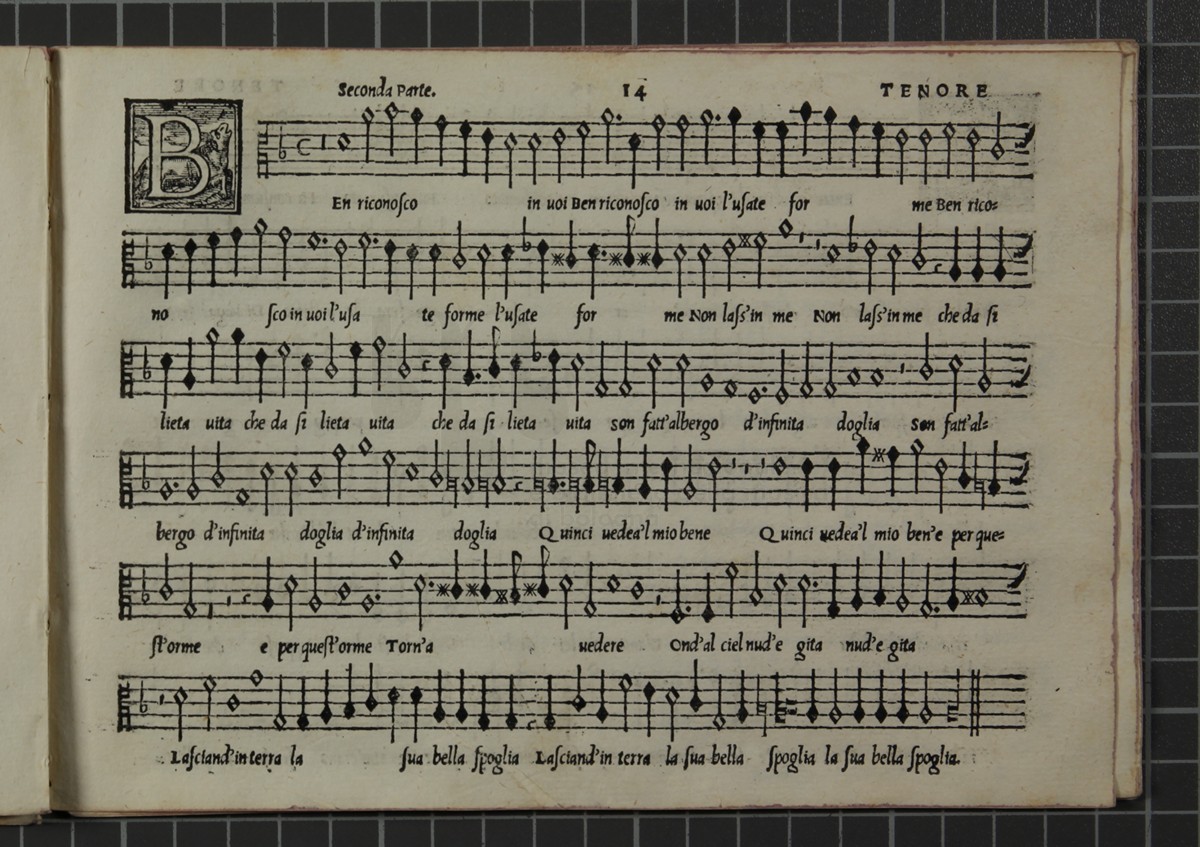 Seconda Parte. 14 TENORE
BEn riconoſco in uoi Ben riconoſco in uoi l'uſate for me Ben rico=
no ſco in uoi l'uſa te forme l'uſate for me Non laſſ'in me Non laſſ'in me che da ſi
lieta uita che da ſi lieta uita che da ſi lieta uita son fatt'albergo d'infinita doglia son fatt'al=
bergo d'infinita doglia d'infinita doglia Quinci uedea'l mio bene Quinci uedea'l mio ben'e per que=
ſt'orme e per queſt'orme Torn'a uedere Ond'al ciel nud'e gita nud'e gita
Laſciand'in terra la ſua bella ſpoglia Laſciand'in terra la ſua bella ſpoglia la ſua bella ſpoglia.